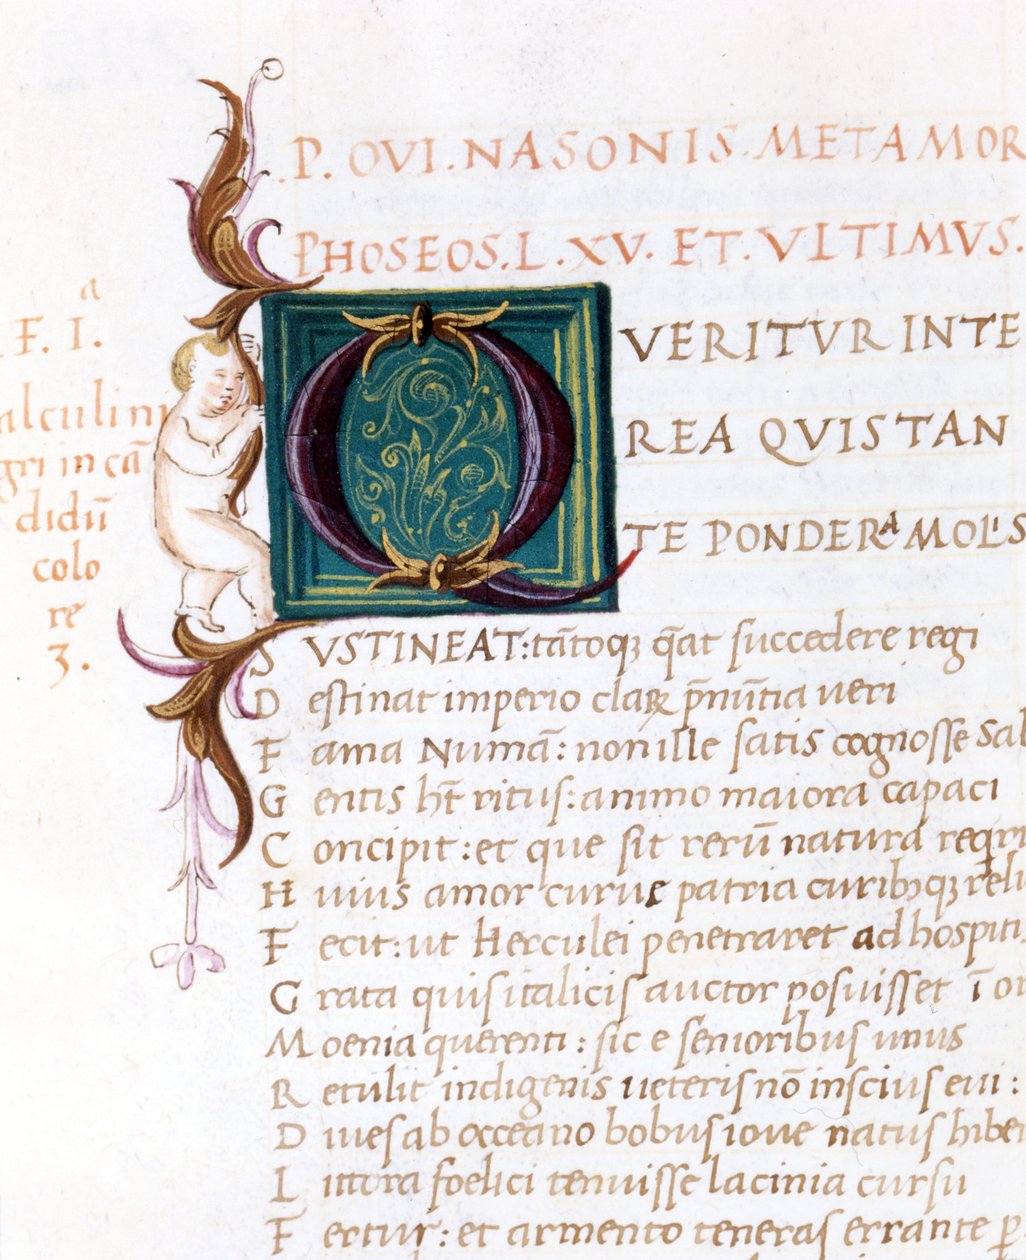 P. OVI. NASONIS. METAMOR
PHOSEOS. L. XV. ET. VLTIMVS.
a
F. I.
alculi ni
gri in cā
didū
colo
re
3.
QVERITVR INTE
REA QVIS TAN
TE PONDERA MOLIS
SVSTINEAT: tātoqꝫ q̄at succedere regi
Destinat imperio claꝝ p̄nūtia ueri
Fama Numā: non ille satis cognosse Sab
Gentis h̄r̄ ritus: animo maiora capaci
Concipit: et que sit rerū natura reqri
Huius amor curue patria curibꝫqꝫ reli
Fecit: ut Herculei penetraret ad hospiti
Grata quis italicis auctor posuisset ī or
Moenia querenti: sic e senioribus unus
Retulit indigenis ueteris nō inscius eui:
Diues ab occeano bobus ioue natus hiber
Littora foelici tenuisse lacinia cursu
Fertur: et armento teneras errante p